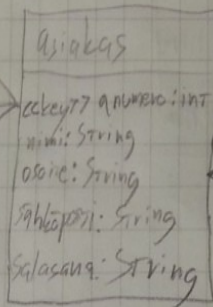 asiakas
<<key>> anumero: int
nimi: String
osoite: String
sähköposti: String
salasana: String